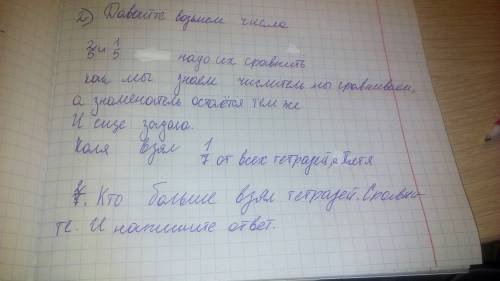 2) Давайте возьмем числа
2/5 и 1/5 надо их сравнить
как мы знаем числитель мы сравниваем,
а знаменатель остаётся тем же
И еще задача.
Коля взял 1/7 от всех тетрадей, а Петя
/7. Кто больше взял тетрадей. Сравни-
те. И напишите ответ.